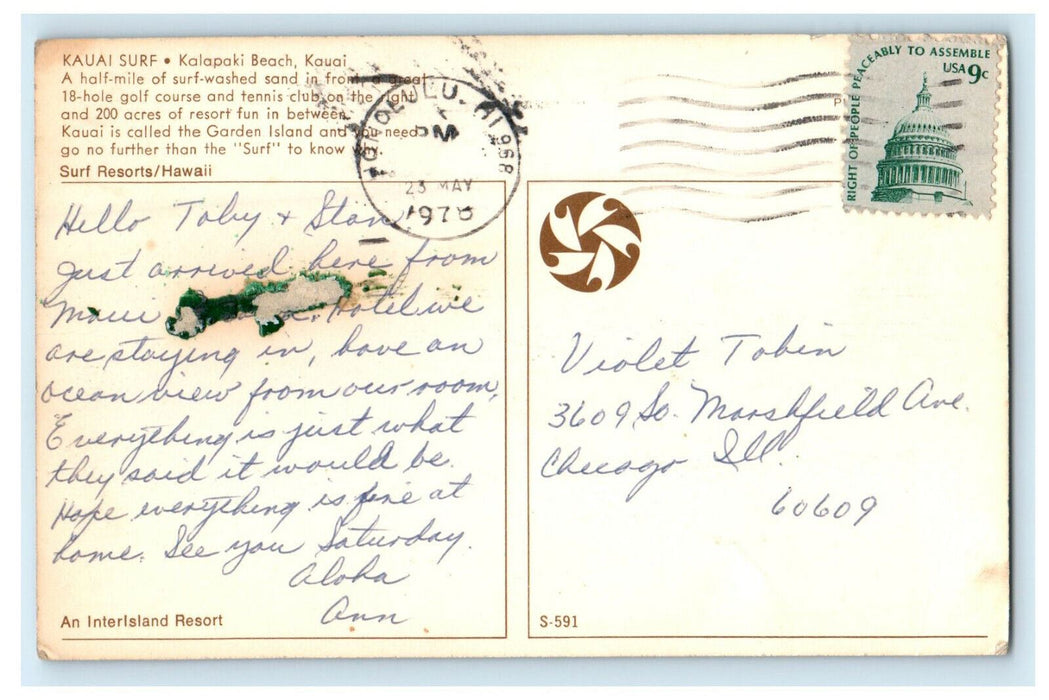 KAUAI SURF • Kalapaki Beach, Kauai
A half-mile of surf-washed sand in front, a great
18-hole golf course and tennis club on the right
and 200 acres of resort fun in between.
Kauai is called the Garden Island and you need
go no further than the "Surf" to know why.
Surf Resorts/Hawaii
HONOLULU, HI 968
PM
23 MAY
1978
RIGHT OF PEOPLE PEACEABLY TO ASSEMBLE
USA 9c
Hello Toby + Stan
Just arrived here from
Maui Hotel we
are staying in, have an
ocean view from our room,
Everything is just what
they said it would be.
Hope everything is fine at
home. See you Saturday.
Aloha
Ann
An InterIsland Resort
Violet Tobin
3609 So. Marshfield Ave.
Chicago Ill.
60609
S-591